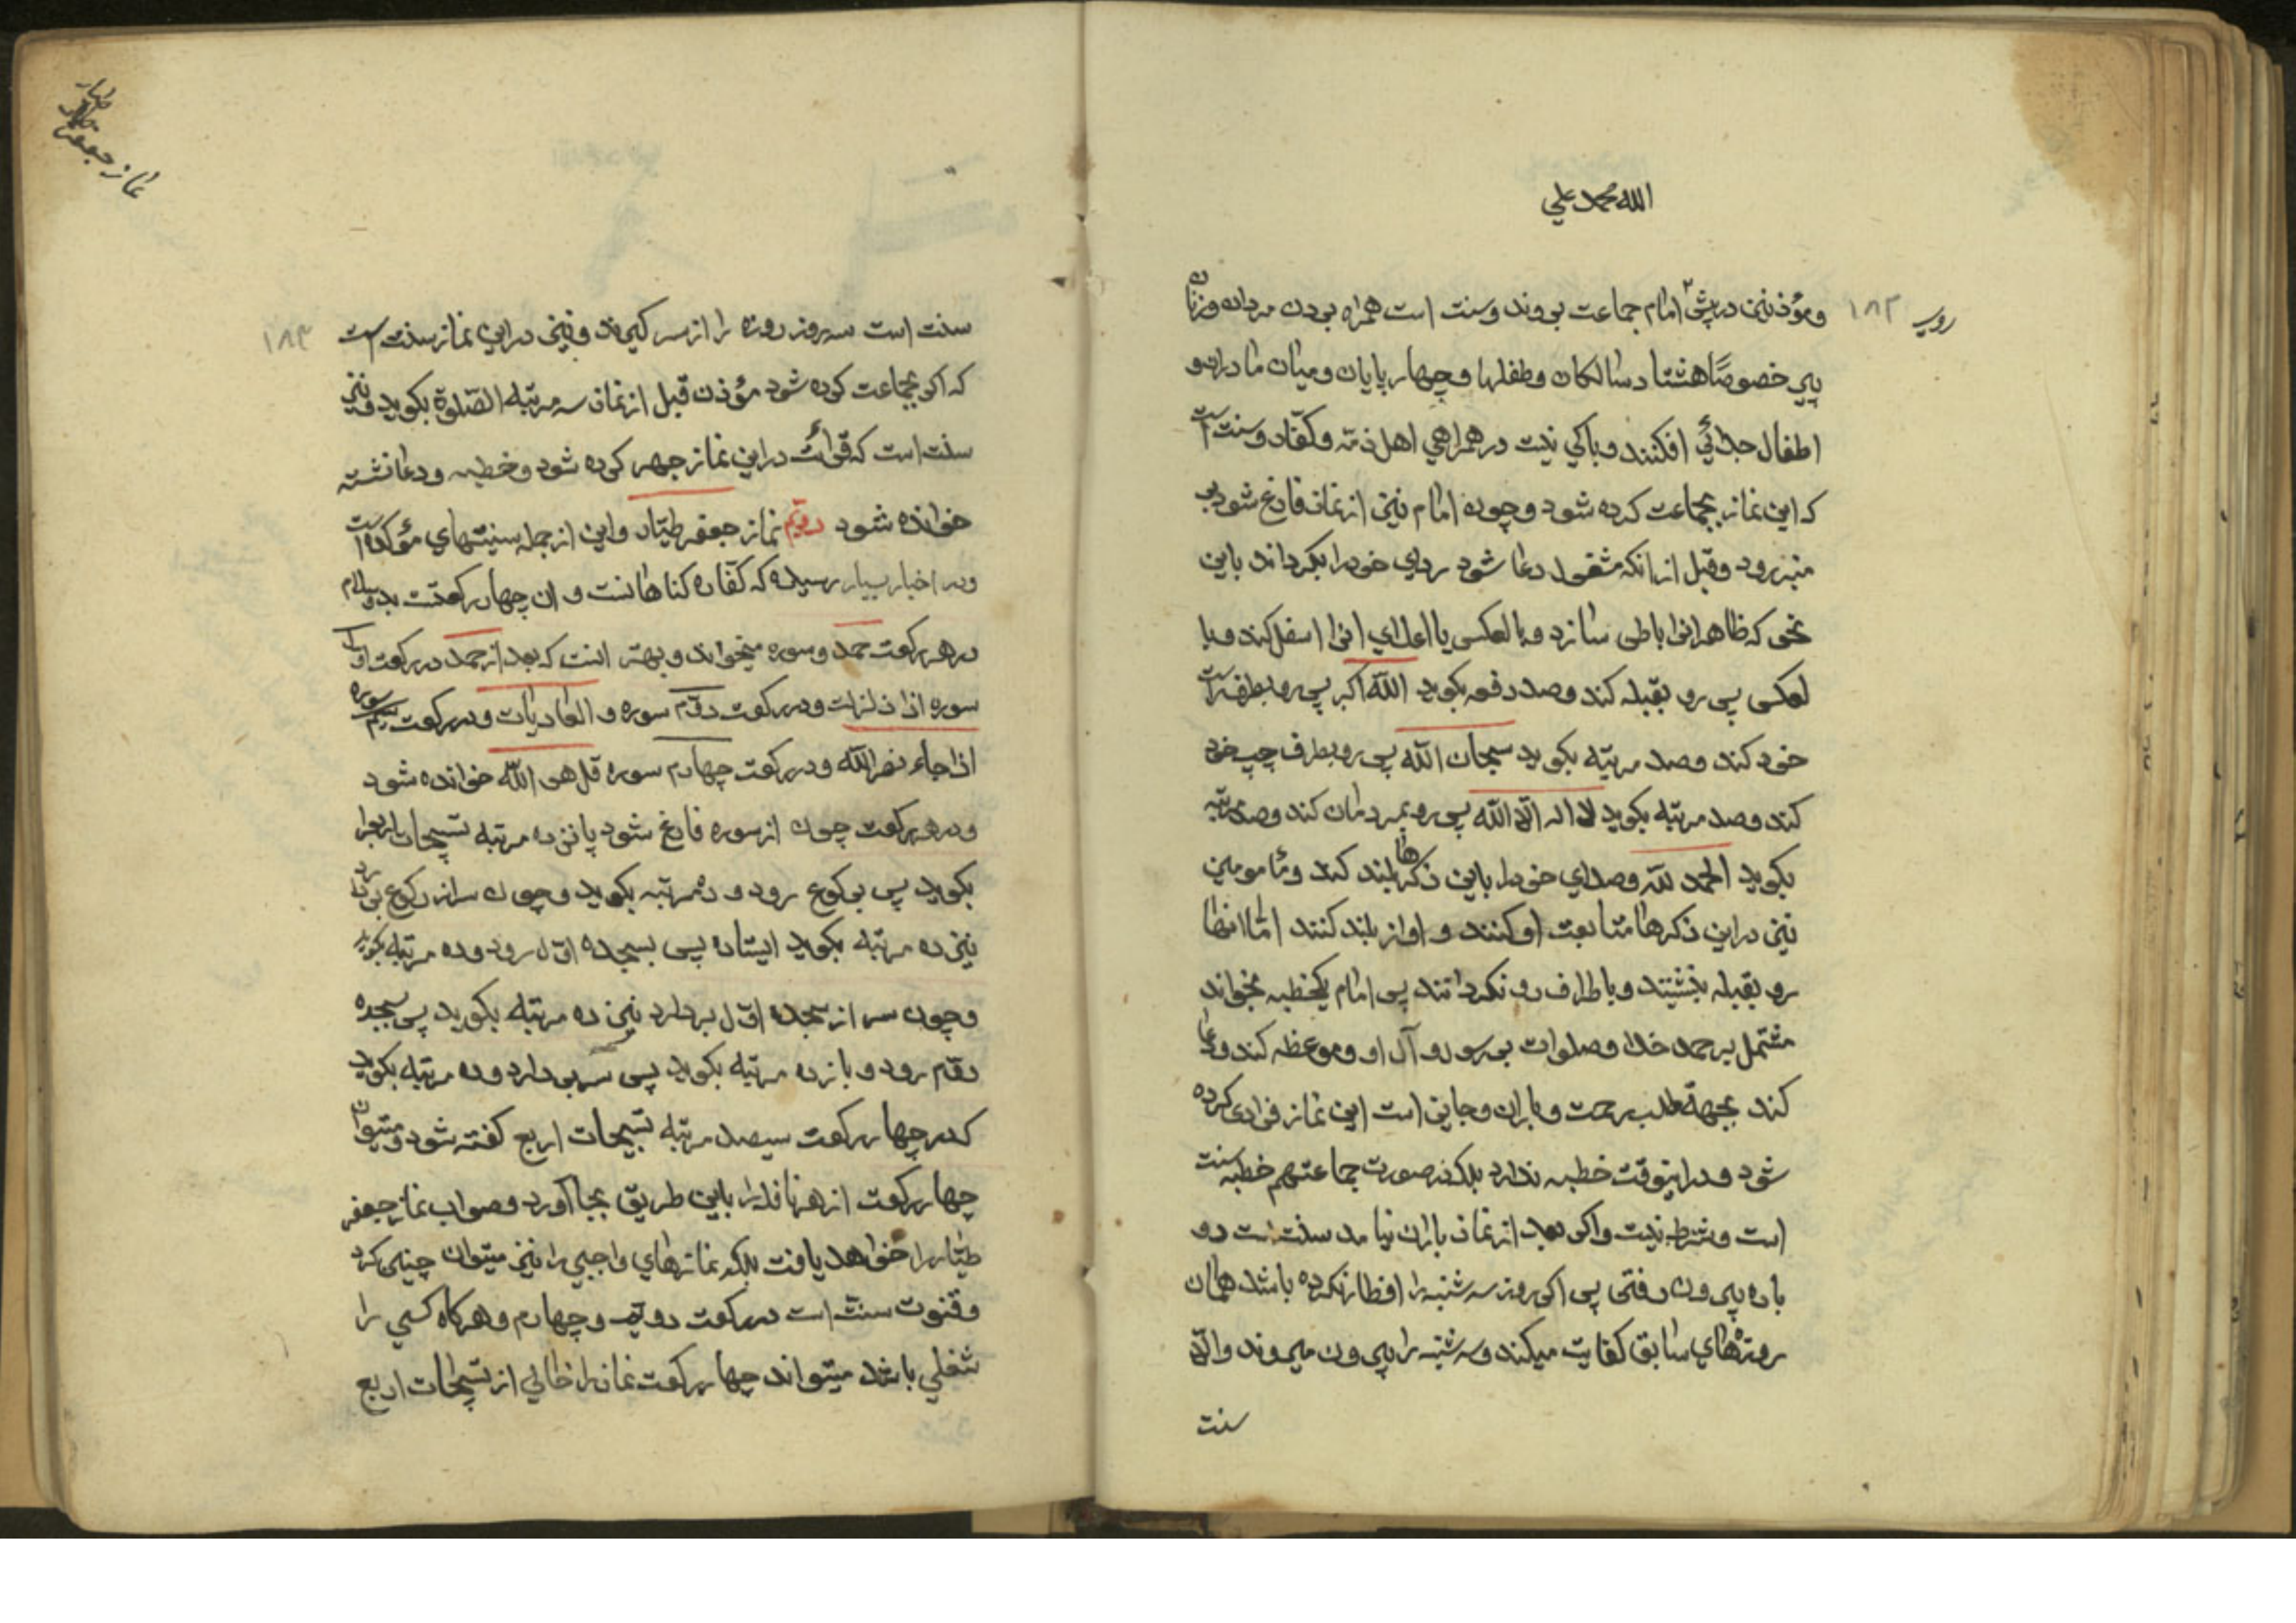 الله محمد علي
روپ ۱۸۲
و مؤذنین در پیش امام جماعت بروند و سنت است همراه بودن مردان و زنان
پیر خصوصًا هشتاد سالکان و طفلها و چهار پایان و میان مادران و
اطفال جدائي افکنند و باکي نیست در همراهي اهل ذمّه و کفّار و سنت است
که این نماز بجماعت کرده شود و چون امام نیز از نماز فارغ شود بر
منبر رود و قبل از انکه مشغول دعا شود رداي خود را بکرداند باین
نحو که ظاهر انرا باطن سازد و بالعکس یا اعلاي انرا اسفل کند و با
لعکس پس رو بقبله کند و صد دفعه بکوید الله اکبر پس رو بطرف راست
خود کند و صد مرتبه بکوید سبحان الله پس رو بطرف چپ خود
کند و صد مرتبه بکوید لا اله الّا الله پس رو بمردمان کند و صد مرتبه
بکوید الحمد لله و صداي خود را باین ذکرها بلند کند و مامومین
نیز در این ذکرها متابعت او کنند و اواز بلند کنند امّا انها
رو بقبله بنشینند و باطراف رو نکردانند پس امام یکخطبه بخواند
مشتمل بر حمد خدا و صلوات بر رسول و آل او و موعظه کند و دعا
کند بجهة طلب رحمت و باران و جایز است این نماز فرادی کرده
شود و در اینوقت خطبه ندارد بلکه در صورت جماعتهم خطبه سنت
است و شرط نیست و اکر بعد از نماز باران نیامد سنت است دو
باره بیرون رفتن پس اکر روز سه شنبه را افطار نکرده باشند همان
روزهاي سابق کفایت میکند و سه شنبه را بیرون میروند و الّا
سنت
نماز جعفر طیار
۱۸۳
سنت است سه روز روزه را از سر کیرند و نیز در این نماز سنت است
که اکر بجماعت کرده شود مؤذن قبل از نماز سه مرتبه الصّلوة بکوید و نیز
سنت است که قرائت در این نماز جهر کرده شود و خطبه و دعا نشسته
خوانده شود دویّم نماز جعفر طیّار و این از جمله سنیتهاي مؤکده است
و در اخبار بسیار رسیده که کفّاره کناهانست و ان چهار رکعتست بدو سلام
در هر رکعت حمد و سوره میخواند و بهتر انست که بعد از حمد در رکعت اوّل
سوره اذا زلزلت و در رکعت دوّم سوره و العادیات و در رکعت سیّم سوره
اذا جاء نصر الله و در رکعت چهارم سوره قل هو الله خوانده شود
و در هر رکعت چون از سوره فارغ شود پانزده مرتبه تسبیحات اربع را
بکوید پس برکوع رود و ده مرتبه بکوید و چون سر از رکوع بردارد
نیز ده مرتبه بکوید ایستاده پس بسجده اوّل رود و ده مرتبه بکوید
و چون سر از سجده اوّل بردارد نیز ده مرتبه بکوید پس بسجده
دوّم رود و باز ده مرتبه بکوید پس سر بردارد و ده مرتبه بکوید
که در چهار رکعت سیصد مرتبه تسبیحات اربع کفته شود و میتوان
چهار رکعت از هر نافله را باین طریق بجا آورد و صواب نماز جعفر
طیّار را خواهد یافت بلکه نمازهاي واجبي را نیز میتوان چنین کرد
و قنوت سنت است در رکعت دویّم و چهارم و هرکاه کسي را
شغلي باشد میتواند چهار رکعت نماز را خالي از تسبیحات اربع